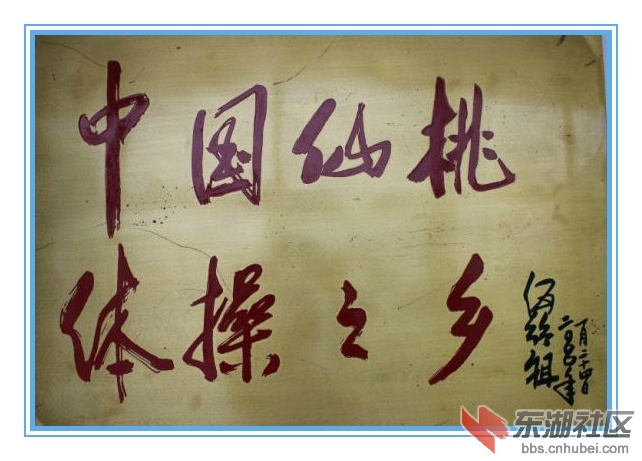 中国仙桃
体操之乡
伍绍祖
东湖社区
bbs.cnhubei.com